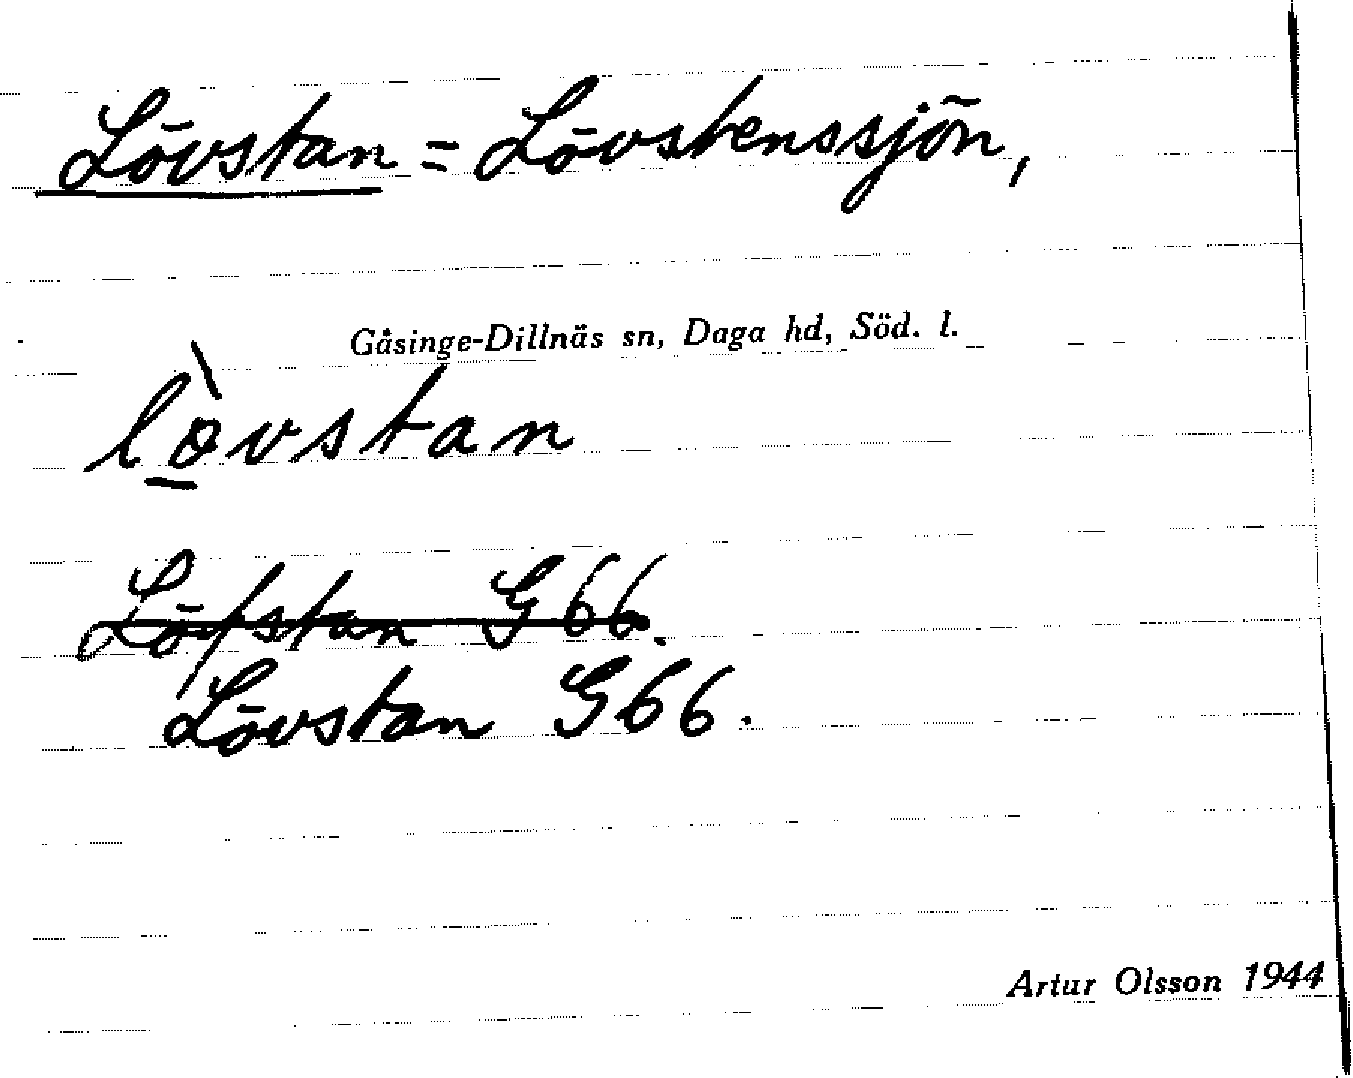 Lövstan = Lövstenssjön,
Gåsinge-Dillnäs sn, Daga hd, Söd. l.
lòvstan
Löfstan G 66.
Lövstan G 66.
Artur Olsson 1944